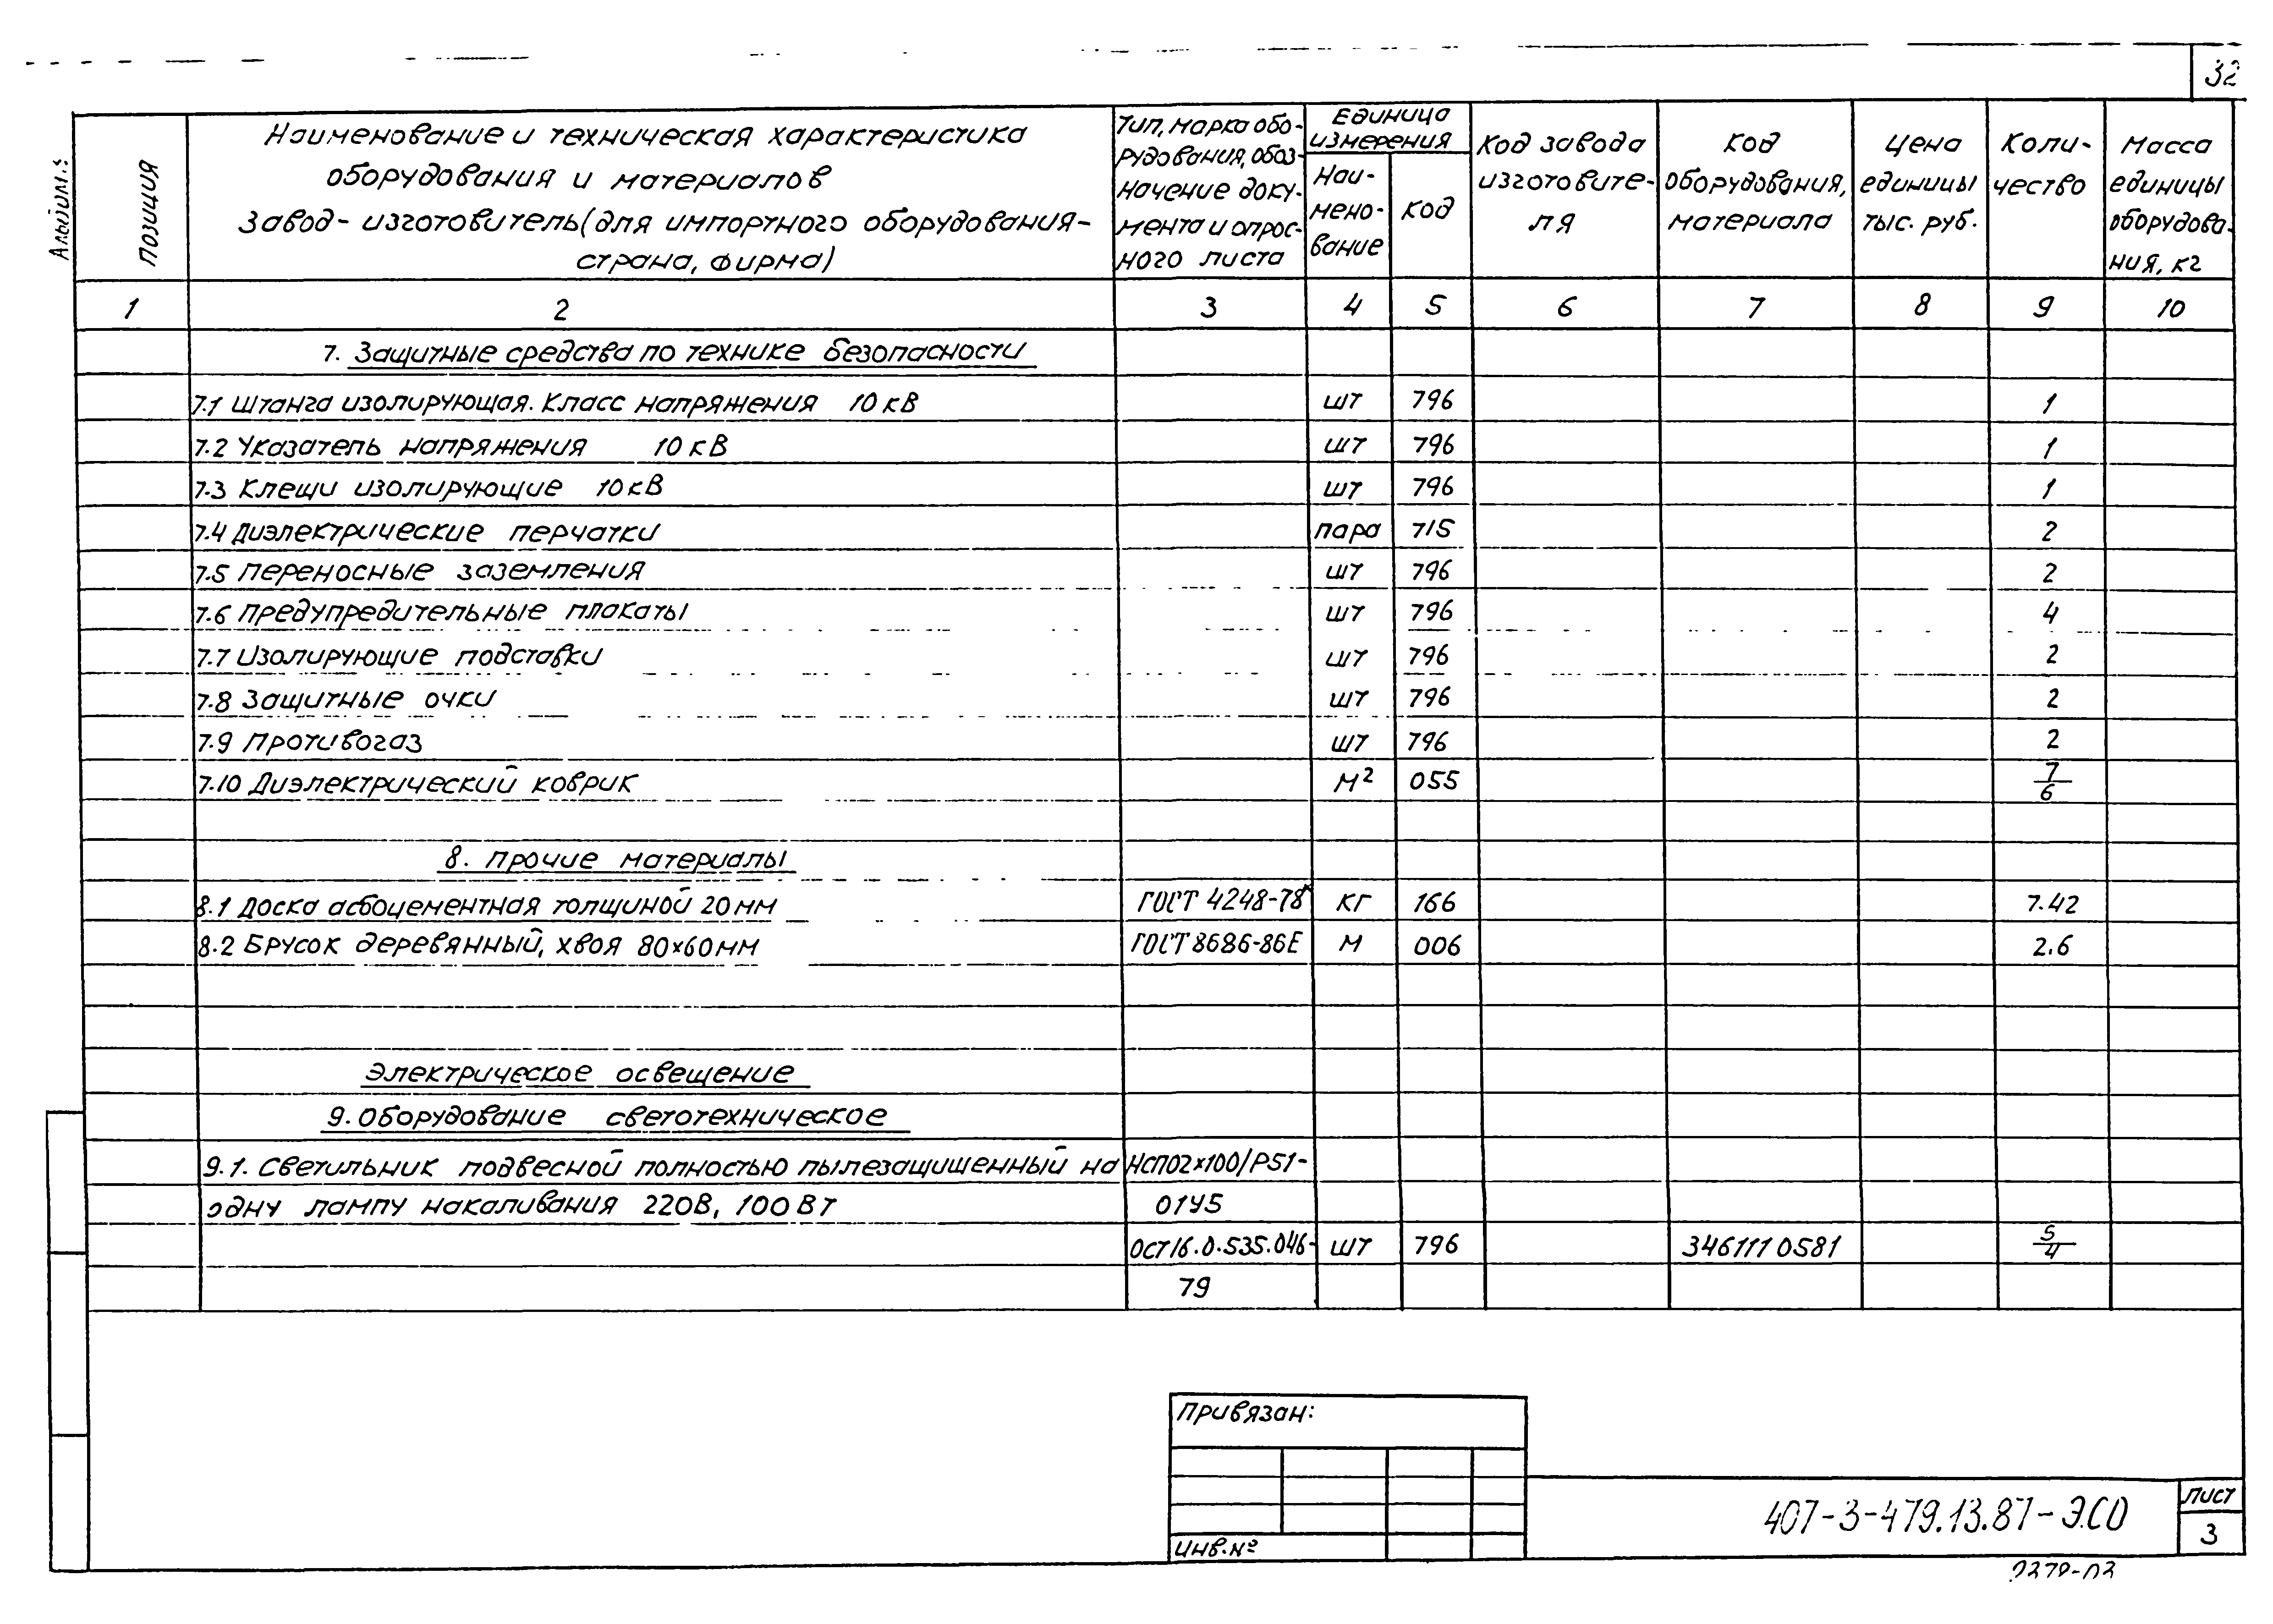 32
Альбом.:
Позиция
Наименование и техническая характеристика
оборудования и материалов
Завод-изготовитель (для импортного оборудования-
страна, фирма)
Тип, марка обо-
рудования, обоз-
начение доку-
мента и опрос-
ного листа
Единица
измерения
Наи-
мено-
вание
Код
Код завода
изготовите-
ля
Код
оборудования,
материала
Цена
единицы
тыс. руб.
Коли-
чество
Масса
единицы
оборудова-
ния, кг
1 2 3 4 5 6 7 8 9 10
7. Защитные средства по технике безопасности
7.1 Штанга изолирующая. Класс напряжения 10 кВ шт 796 1
7.2 Указатель напряжения 10 кВ шт 796 1
7.3 Клещи изолирующие 10кВ шт 796 1
7.4 Диэлектрические перчатки пара 715 2
7.5 Переносные заземления шт 796 2
7.6 Предупредительные плакаты шт 796 4
7.7 Изолирующие подставки шт 796 2
7.8 Защитные очки шт 796 2
7.9 Противогаз шт 796 2
7.10 Диэлектрический коврик м² 055 7/6
8. Прочие материалы
8.1 Доска асбоцементная толщиной 20 мм ГОСТ 4248-78* кг 166 7.42
8.2 Брусок деревянный, хвоя 80×60 мм ГОСТ 8686-86Е м 006 2.6
Электрическое освещение
9. Оборудование светотехническое
9.1. Светильник подвесной полностью пылезащищенный на НСП02×100/Р51-
одну лампу накаливания 220В, 100 Вт 01У5
ОСТ16.0.535.046- шт 796 3461110581 5/4
79
Привязан:
Инв.№
407-3-479.13.87-ЭСО
Лист
3